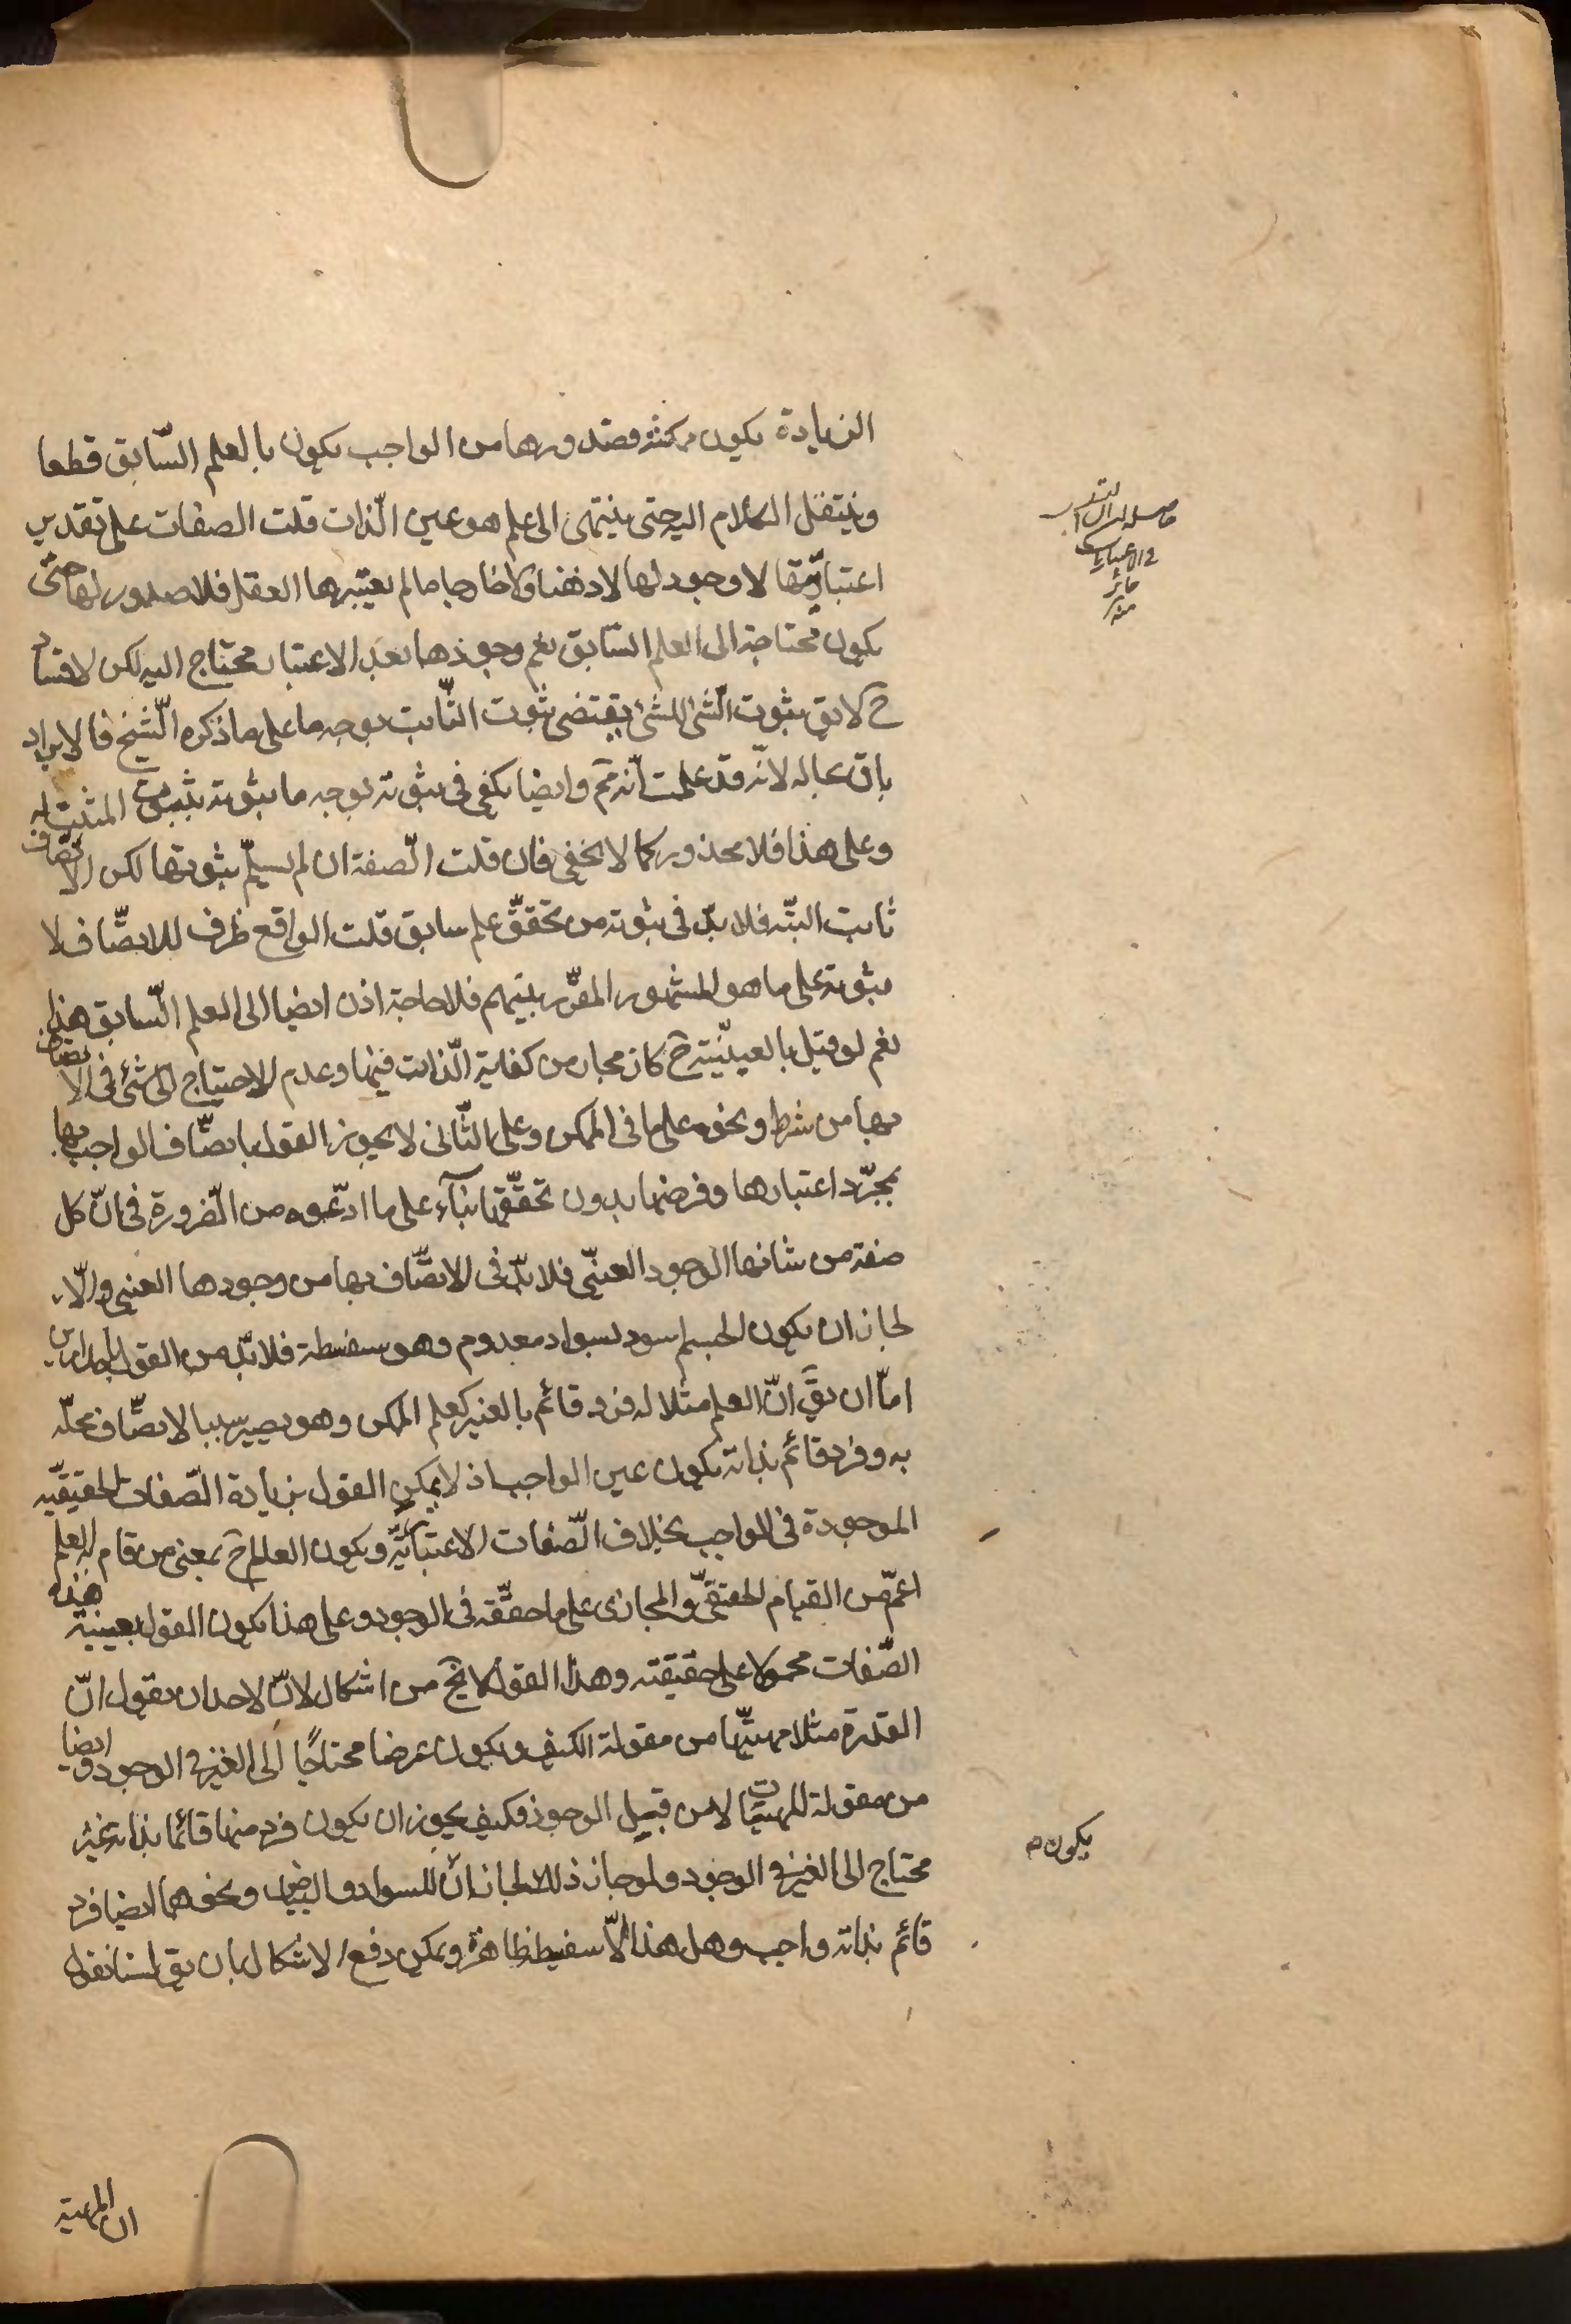 الزيادة يكون ممكنة فصدورها من الواجب يكون بالعلم السّابق قطعا
وينتقل الكلام اليه حتى ينتهى الى علم هو عين الذّات قلت الصفات على تقدير
اعتباريّتها لا وجود لها لا ذهنا ولا خارجا ما لم يعتبرها العقل فلا صدور لها حتّى
يكون محتاجة الى العلم السّابق نعم وجودها بعد الاعتبار محتاج اليه لكن لا فساد
ح لا يق ثبوت الشّئ للشئ يقتضى ثبوت الثّابت بوجه ما على ما ذكره الشّيخ فالايراد
باق بحاله لانّه قد علمت انّه مم وايضا يكفى فى ثبوته بوجه ما ثبوته بثبوت المثبت له
وعلى هذا فلا محذور كما لا يخفى فان قلت الصّفة ان لم يسلّم ثبوتها لكن الاتّصاف
ثابت البتّه فلا بدّ فى ثبوته من تحقّق علم سابق قلت الواقع ظرف للاتّصاف لا
ثبوته على ما هو المشهور المقرّر بينهم فلا حاجة اذن ايضا الى العلم السّابق هذا
نعم لو قيل بالعينيّة ح كان مجاز من كفاية الذّات فيها وعدم الاحتياج الى شئ فى الاتصاف
بها من شرط ونحوه على ما فى الممكن وعلى الثّانى لا يجوز القول باتّصاف الواجب بها
بمجرّد اعتبارها وفرضها بدون تحقّقها بنآء على ما ادّعوه من الضّرورة فى انّ كل
صفة من شانها الوجود العينىّ فلا بدّ فى الاتّصاف بها من وجودها العينى والّا
لجاز ان يكون الجسم اسود بسواد معدوم وهو سفسطة فلا بدّ من القول باحد امرين
امّا ان يق انّ العلم مثلا له فرد قائم بالغير كعلم الممكن وهو يصير سببا لاتصّاف محلّه
به وفرد قائم بذاته يكون عين الواجب اذ لا يمكن القول بزيادة الصّفات الحقيقيّه
الموجودة فى الواجب بخلاف الصّفات الاعتباريّه ويكون العالم ح بمعنى من قام به العلم
اعمّ من القيام الحقيقىّ والمجازى على ما حقّقه فى الوجود وعلى هذا يكون القول بعينية هذه
الصّفات محمولا على حقيقته وهذا القول لا يخ من اشكال لانّ لاحد ان يقول انّ
القدرة مثلا مهيتّها من مقولة الكيف ويكون عرضا محتاجًا الى الغير فى الوجود وايضا
من مقولة المهيّات لا من قبيل الوجود فكيف يجوز ان يكون فرد منها قائما بذاته غير
محتاج الى الغير فى الوجود ولو جاز ذلك لجاز ان للسواد والبياض ونحوهما ايضا فرد
قائم بذاته واجب وهل هذا الّا سفسطة ظاهرة ويمكن دفع الاشكال بان يق لسنا نقول
يكون م
ان المهية